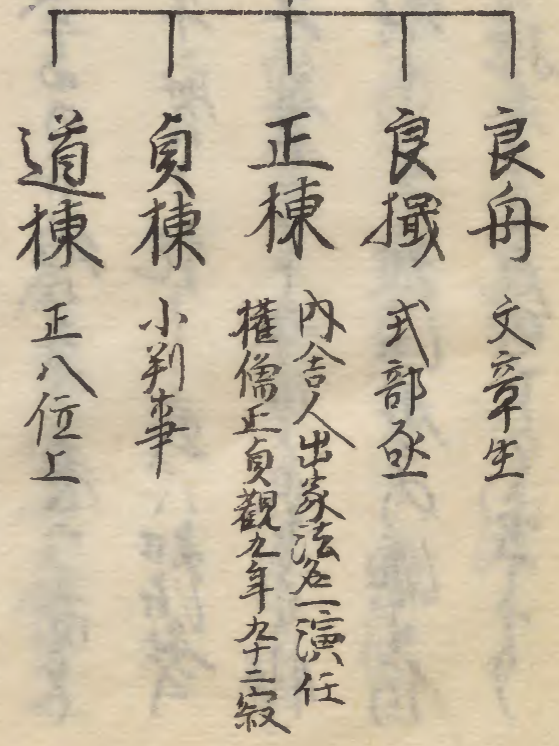 良舟 文章生
良檝 式部丞
正棟 內舍人出家法名一演任
權僧正貞觀九年九十二寂
貞棟 小判事
道棟 正八位上